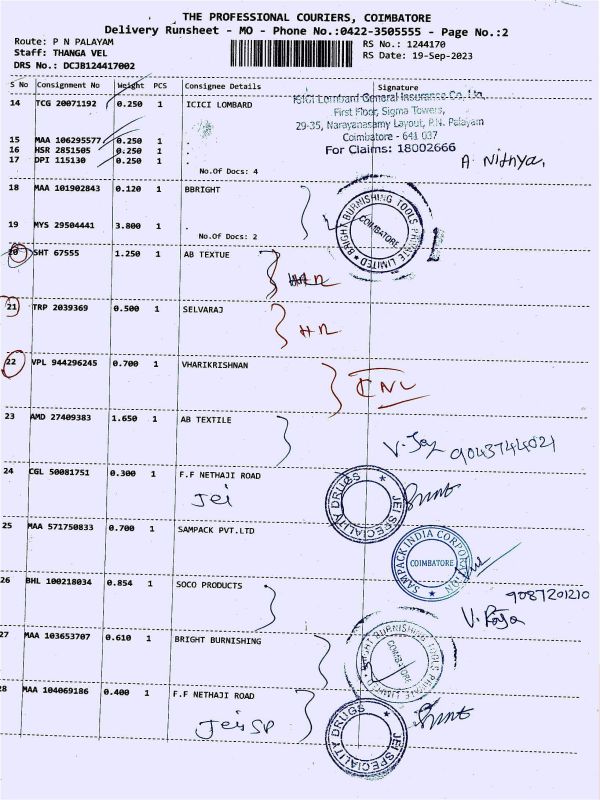 THE PROFESSIONAL COURIERS, COIMBATORE
Delivery Runsheet - MO - Phone No.:0422-3505555 - Page No.:2
Route: P N PALAYAM
Staff: THANGA VEL
DRS No.: DCJB124417002
RS No.: 1244170
RS Date: 19-Sep-2023
S No Consignment No Weight PCS Consignee Details Signature
14 TCG 20071192 0.250 1 ICICI LOMBARD
ICICI Lombard General Insurance Co. Ltd.
First Floor, Sigma Towers,
29-35, Narayanasamy Layout, P.N. Palayam
Coimbatore - 641 037
For Claims: 18002666
A. Nithya
15 MAA 106295577 0.250 1 .
16 HSR 2851505 0.250 1 .
17 DPI 115130 0.250 1 .
No.Of Docs: 4
18 MAA 101902843 0.120 1 BBRIGHT
19 MYS 29504441 3.800 1 .
No.Of Docs: 2
BRIGHT BURNISHING TOOLS PRIVATE LIMITED
COIMBATORE
20 SHT 67555 1.250 1 AB TEXTUE
21 TRP 2039369 0.500 1 SELVARAJ
22 VPL 944296245 0.700 1 VHARIKRISHNAN
23 AMD 27409383 1.650 1 AB TEXTILE
9043744021
24 CGL 50081751 0.300 1 F.F NETHAJI ROAD
Jei
JEI SPECIALITY DRUGS
25 MAA 571750833 0.700 1 SAMPACK PVT.LTD
SAMPACK INDIA CORPORATION
COIMBATORE
26 BHL 100218034 0.854 1 SOCO PRODUCTS
9087201210
V. Raja
27 MAA 103653707 0.610 1 BRIGHT BURNISHING
BRIGHT BURNISHING TOOLS PRIVATE LIMITED
COIMBATORE
28 MAA 104069186 0.400 1 F.F NETHAJI ROAD
Jei SP
JEI SPECIALITY DRUGS